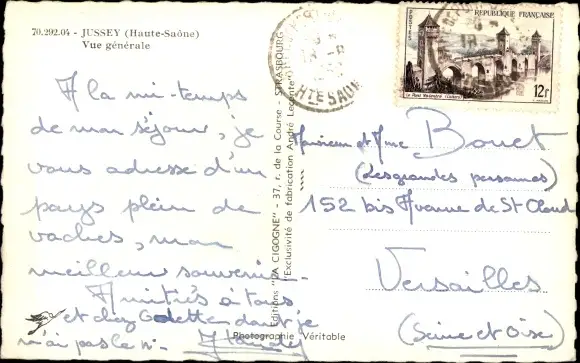 70.292.04 - JUSSEY (Haute-Saône)
Vue générale
A la mi-temps
de mon séjour, je
vous adresse d'un
pays plein de
vaches, mon
meilleur souvenir.
Amitiés à tous
et chez Odette dont je
n'ai pas le n°.
Editions "LA CIGOGNE" - 37, r. de la Course - STRASBOURG
"Exclusivité de fabrication André Leconte"
Photographie Véritable
HTE SAONE
REPUBLIQUE FRANÇAISE
Le Pont Valentré (Cahors)
12f
Monsieur et Mme Bouet
(Les grandes personnes)
152 bis Avenue de St Cloud
Versailles
(Seine et Oise)